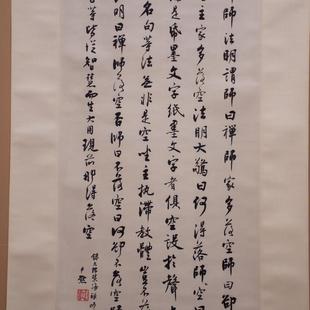 師法明謂師曰禪師家多落空師曰卻
主家多落空法明大驚曰何得落師空曰
是紙墨文字紙墨文字者俱空設於聲
名句等法無非是空坐主執滯教體豈不
明曰禪師落空否師曰不落空曰何卻不落空師
字等皆從智慧而生大用現前那得落空
尹默